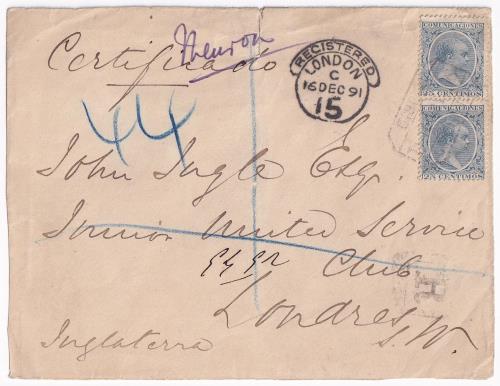 Certificado
REGISTERED
LONDON
C
16 DEC 91
15
COMUNICACIONES
25 CENTIMOS
COMUNICACIONES
25 CENTIMOS
44
John Ingle Esq.
Junior United Service
Club
R
Londres
S.W.
Inglaterra